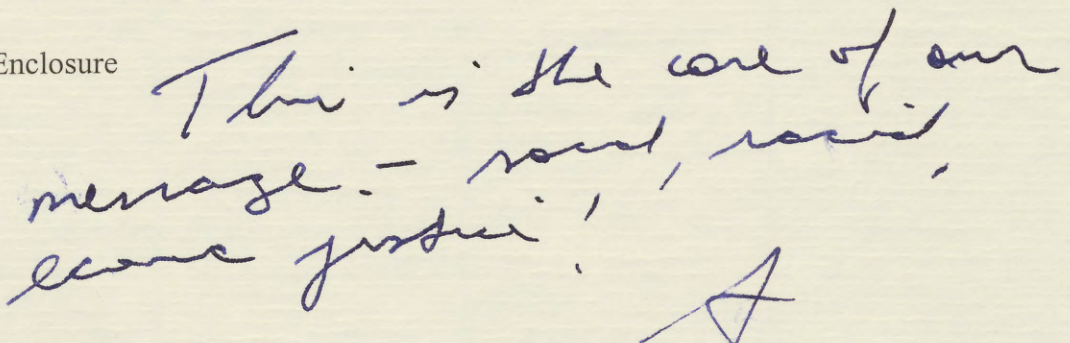 Enclosure
This is the core of our
message. - social, racial,
economic justice!
A